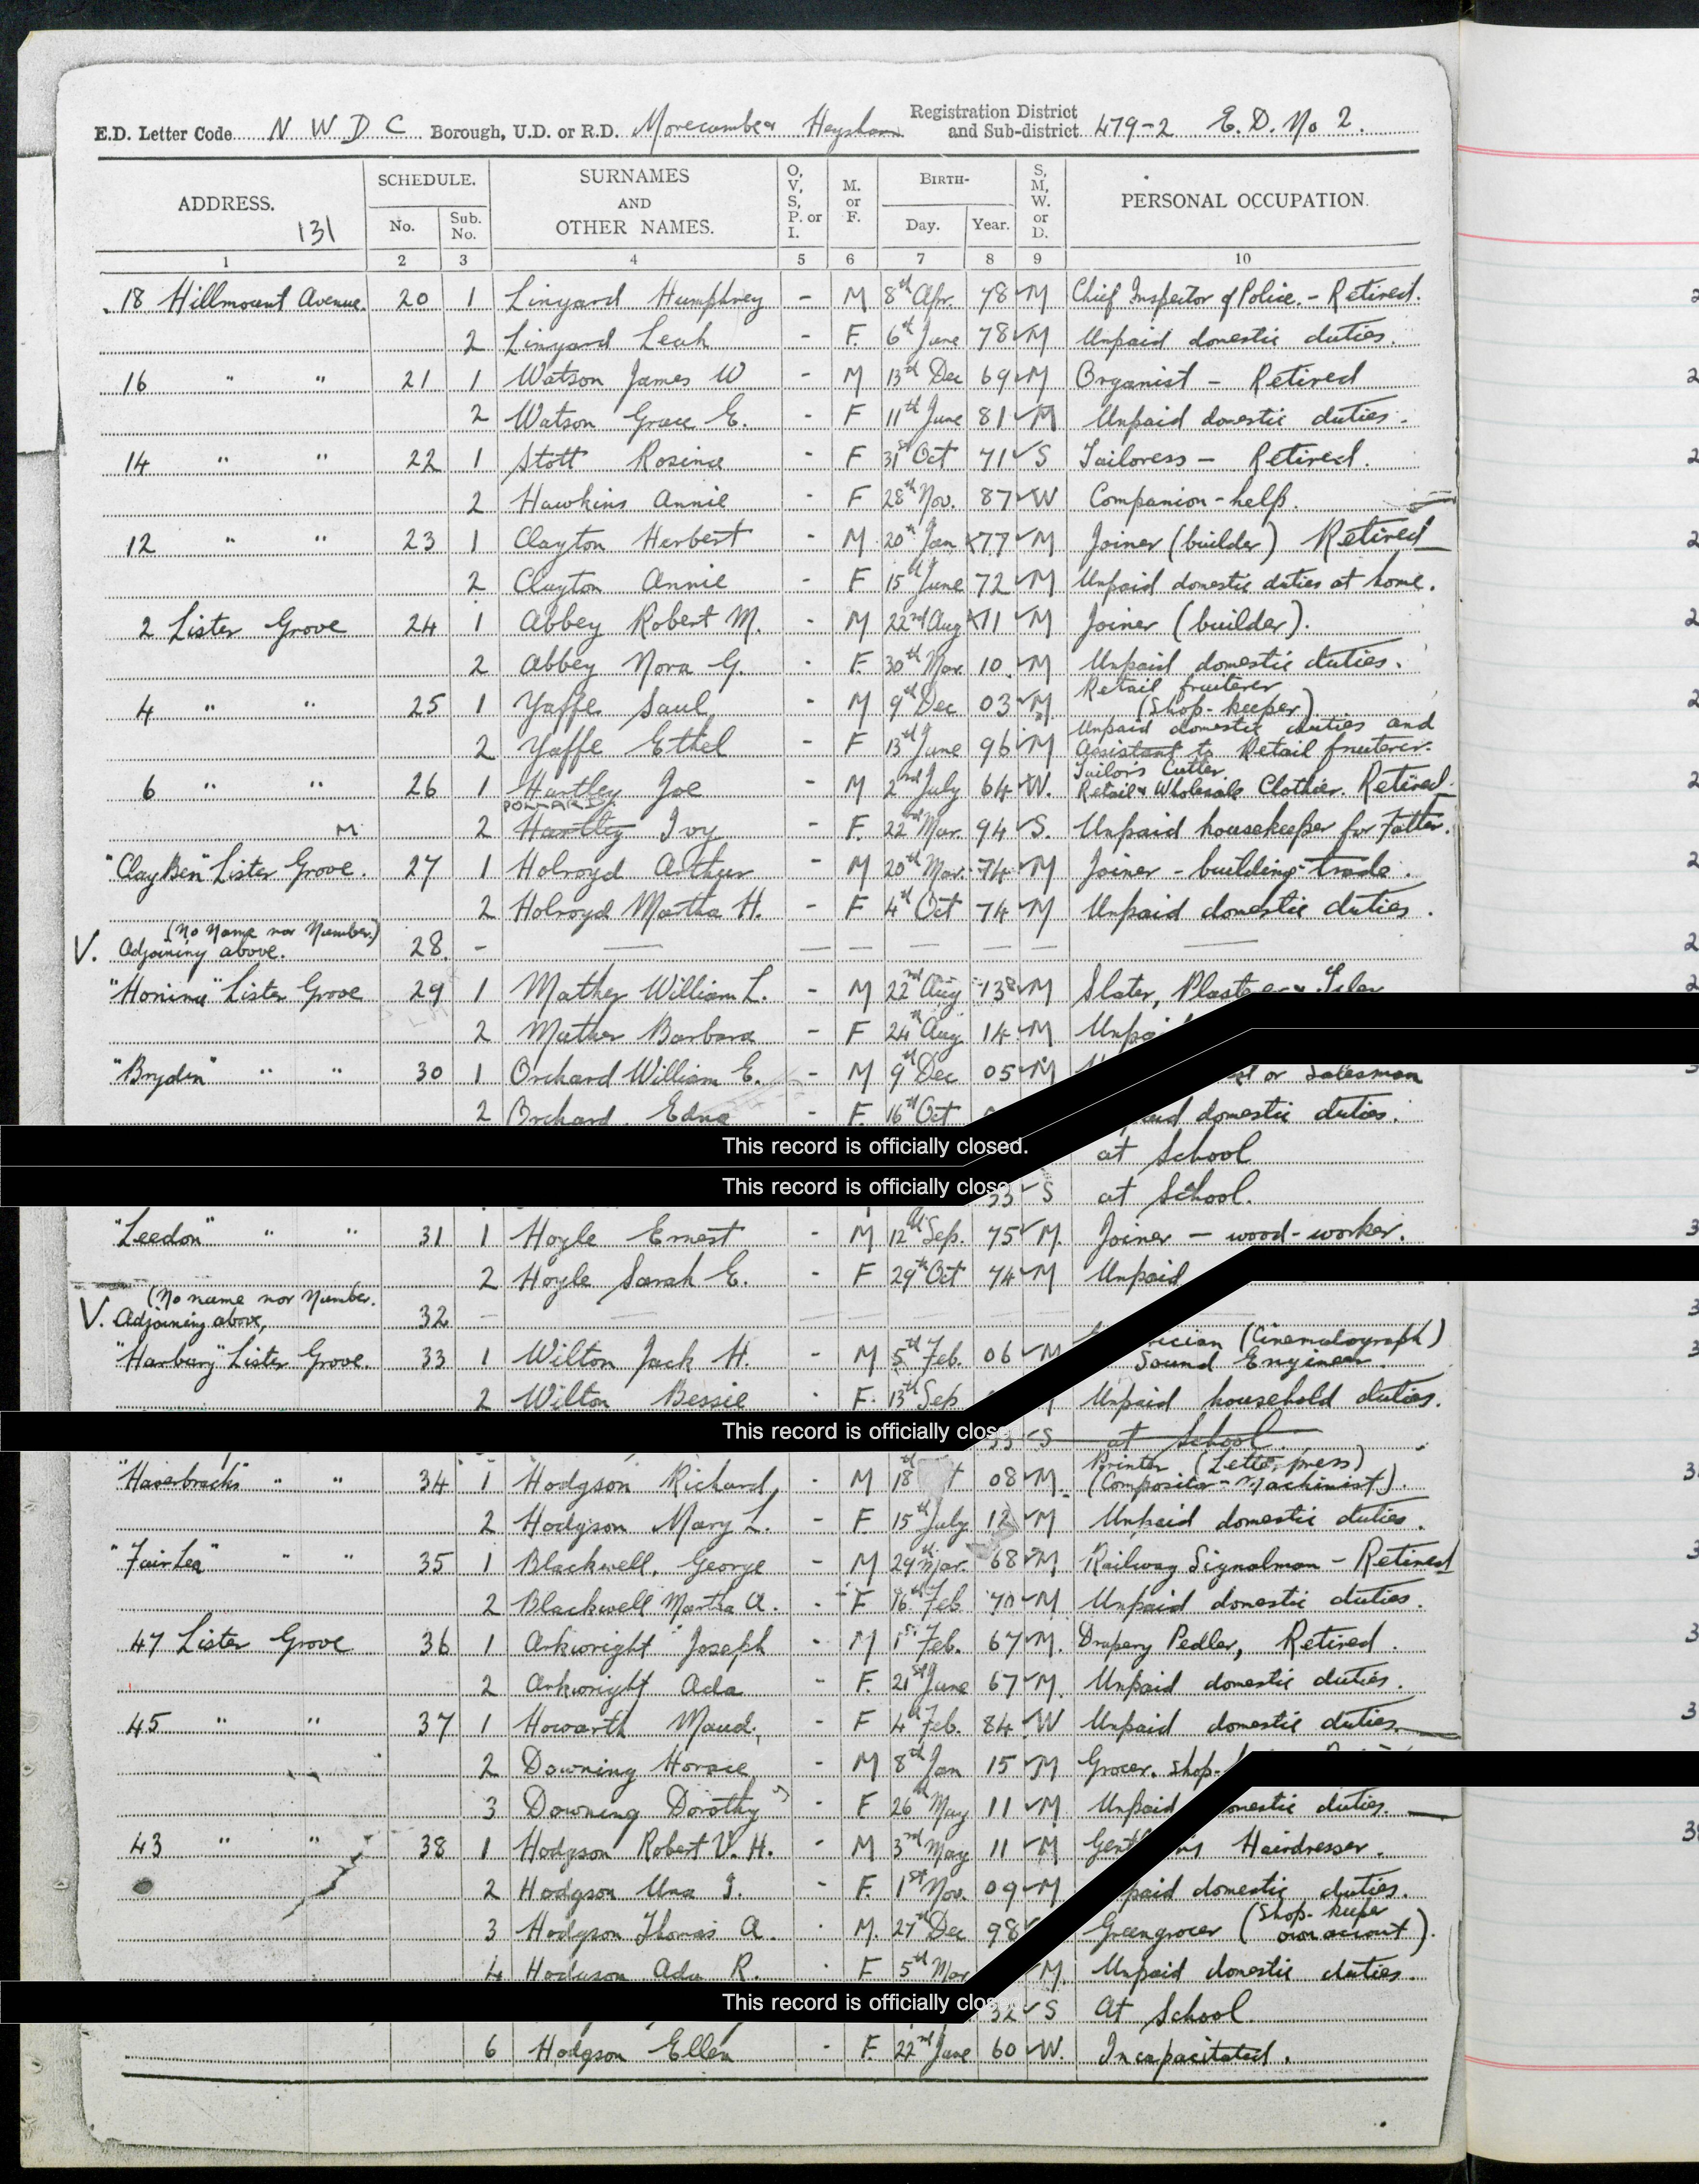 Registration District
E.D. Letter Code N W D C Borough, U.D. or R.D. Morecambe & Heysham and Sub-district 479-2 E.D. No 2.
ADDRESS. 131 SCHEDULE. No. Sub. No. SURNAMES AND OTHER NAMES. O, V, S, P. or I. M. or F. BIRTH- Day. Year. S, M, W. or D. PERSONAL OCCUPATION.
1 2 3 4 5 6 7 8 9 10
18 Hillmount Avenue 20 1 Linyard Humphrey - M 8th Apr. 78 M Chief Inspector of Police. - Retired.
2 Linyard Leah - F. 6th June 78 M Unpaid domestic duties.
16 " " 21 1 Watson James W - M 13th Dec 69 M Organist - Retired
2 Watson Grace E. - F 11th June 81 M Unpaid domestic duties.
14 " " 22 1 Stott Rosina - F 31st Oct 71 S Tailoress - Retired.
2 Hawkins Annie - F 28th Nov. 87 W Companion-help.
12 " " 23 1 Clayton Herbert - M 20th Jan 77 M Joiner (builder) Retired
2 Clayton Annie - F 15th June 72 M Unpaid domestic duties at home.
2 Lister Grove 24 1 Abbey Robert M. - M 22nd Aug 11 M Joiner (builder).
2 Abbey Nora G. - F. 30th Mar. 10 M Unpaid domestic duties.
4 " " 25 1 Yaffe Saul - M 9th Dec 03 M Retail fruiterer (Shop-keeper)
2 Yaffe Ethel - F 13th June 96 M Unpaid domestic duties and Assistant to Retail fruiterer.
6 " " 26 1 Hartley Joe - M 2nd July 64 W. Tailor's Cutter. Retail & Wholesale Clothier. Retired.
M 2 POLLARD Hartley Ivy - F. 22nd Mar. 94 S. Unpaid housekeeper for Father.
"ClayBen" Lister Grove. 27 1 Holroyd Arthur - M 20th Mar. 74 M Joiner - building trade.
2 Holroyd Martha H. - F 4th Oct 74 M Unpaid domestic duties.
(No Name nor Number.)
V. Adjoining above. 28. -
Lister Grove 29 1 Mather William L. - M 22nd Aug 13 M Slater,
2 Mather Barbara - F 24th Aug 14 M
"Bryden" " " 30 1 Orchard William E. - M 9th Dec 05 M or Salesman
2 Orchard Edna - F. 16th Oct domestic duties.
This record is officially closed. at School
This record is officially close 33 S at School.
"Leedon" " " 31 1 Hoyle Ernest - M 12th Sep. 75 M. Joiner - wood-worker.
2 Hoyle Sarah E. - F 29th Oct 74 M Unpaid
(No name nor Number.
V. Adjoining above, 32 -
"Hanbury" Lister Grove. 33 1 Wilton Jack H. - M 5th Feb. 06 M (Cinematograph) Sound Engineer.
2 Wilton Bessie - F. 13th Sep Unpaid household duties.
This record is officially close 33 S at School.
"Haverbracks" " " 34 1 Hodgson Richard - M. 18th 08 M. Printer (Letterpress) (Compositor - Machinist).
2 Hodgson Mary L. - F 15th July 12 M Unpaid domestic duties.
"FairLea" " " 35 1 Blackwell, George - M 29th Mar. 68 M. Railway Signalman - Retired
2 Blackwell Martha A. - F 16th Feb. 70 M Unpaid domestic duties.
47 Lister Grove 36 1 Arkwright Joseph - M 1st Feb. 67 M. Drapery Pedler, Retired.
2 Arkwright Ada - F. 21st June 67 M. Unpaid domestic duties.
45 " " 37 1 Howarth Maud. - F 4th Feb. 84 W Unpaid domestic duties.
2 Downing Horace - M 8th Jan 15 M Grocer. Shop-
3 Downing Dorothy - F 26th May 11 M Unpaid domestic duties.
43 " " 38 1 Hodgson Robert V. H. - M 3rd May 11 M Hairdresser.
2 Hodgson Una I. - F. 1st Nov. 09 M domestic duties.
3 Hodgson Thomas A. - M. 27th Dec 98 Greengrocer (Shop-keeper own account).
4 Hodgson Ada R. - F 5th Mar M. Unpaid domestic duties.
This record is officially clos 32 S At School.
6 Hodgson Ellen - F. 22nd June 60 W. Incapacitated.